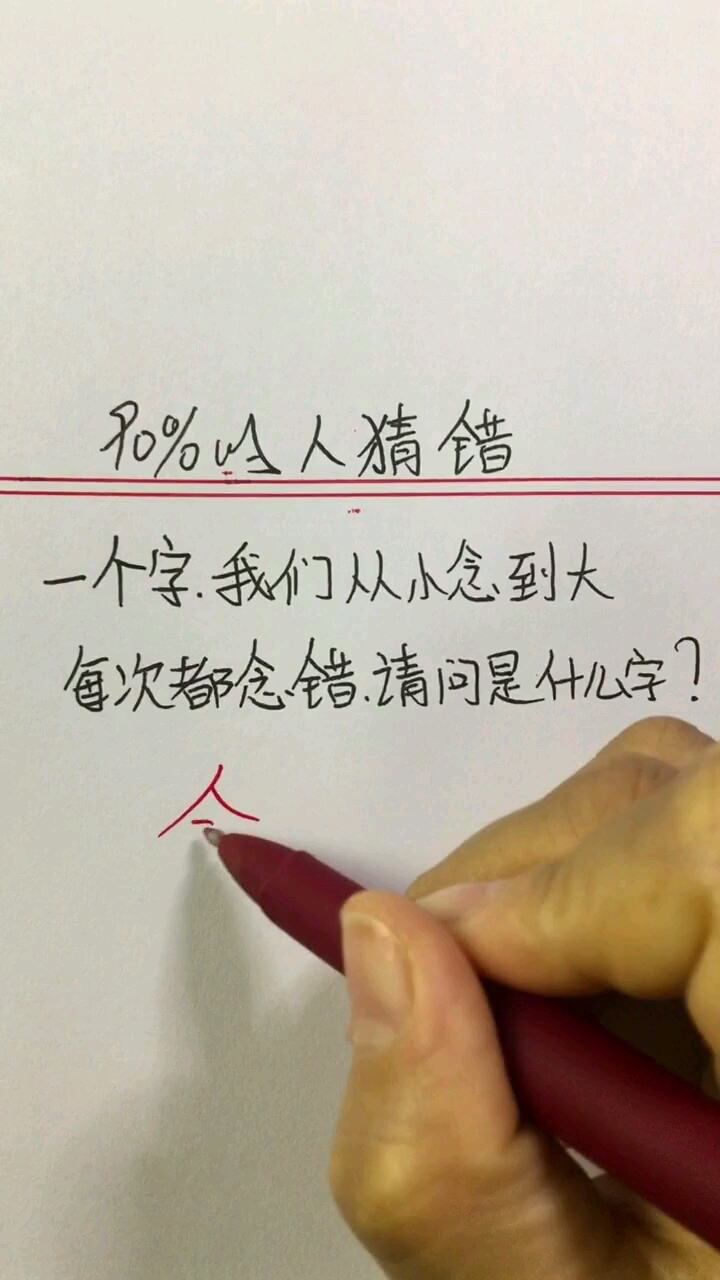 90%的人猜错
一个字.我们从小念到大
每次都念错.请问是什么字?